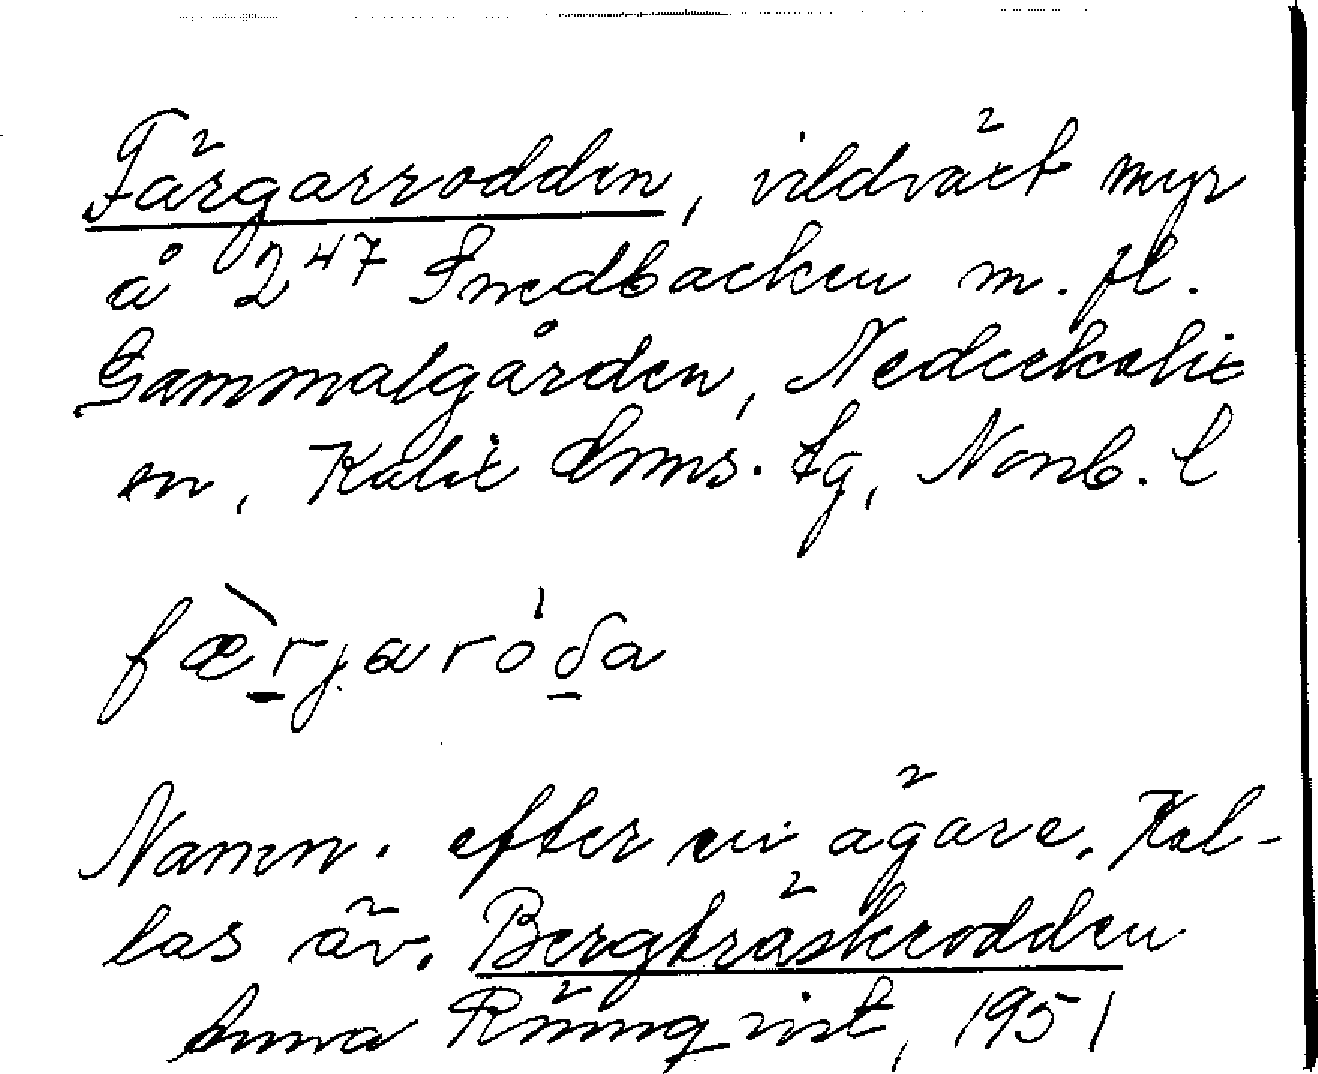 Färgarrodden, vildväxt myr
å 2⁴⁷ Smedbacken m. fl.
Gammalgården, Nederkalix
sn, Kalix dnms. tg, Norrb. l
fæ̀rjaróda
Namn. efter en ägare. Kal-
las äv. Bergträskrodden
Anna Rönnqvist, 1951